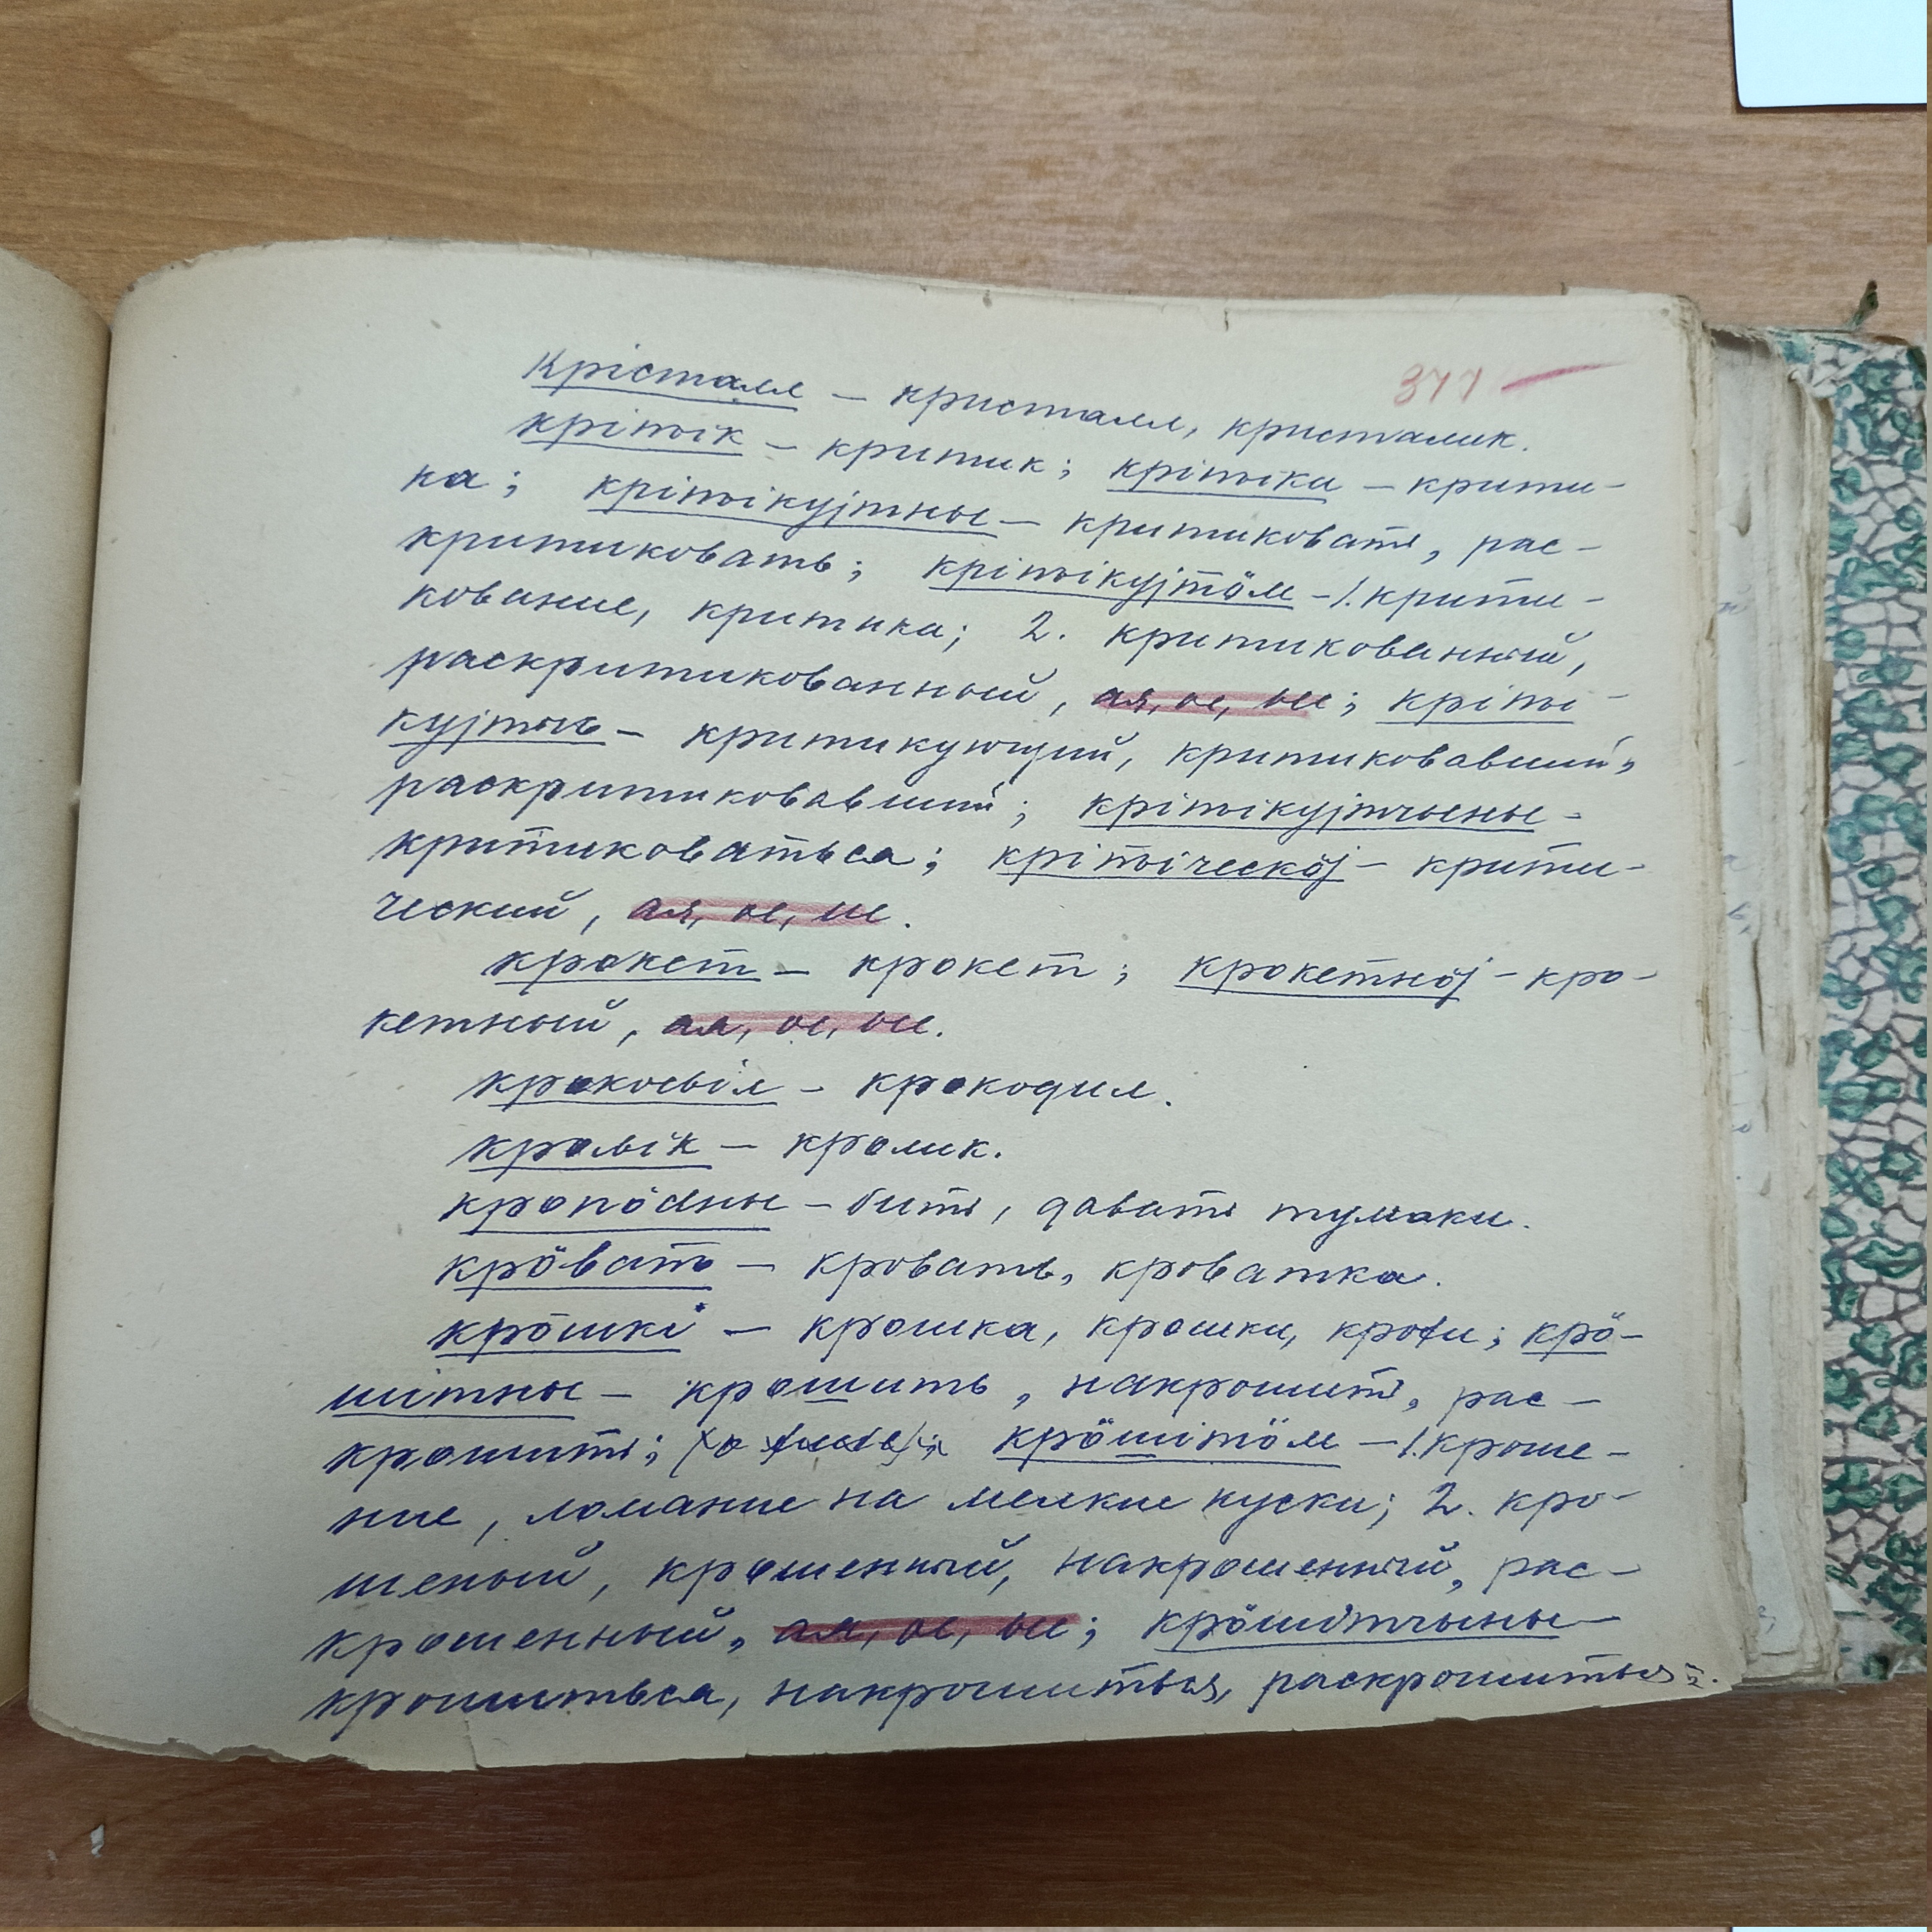 377
Крісталл – кристалл, кристалик.
крітік – критик; крітіка – крити-
ка; крітікујтны – критиковать, рас-
критиковать; крітікујтӧм – 1. крити-
кование, критика; 2. критикованный,
раскритикованный, ая, ое, ые; кріті-
кујтыс – критикующий, критиковавший,
раскритиковавший; крітікујтчыны –
критиковаться; крітіческӧј – крити-
ческий, ая, ое, ие.
крокет – крокет; крокетнӧј – кро-
кетный, ая, ое, ые.
крокоԃіл – крокодил.
кролік – кролик.
кропӧдны – бить, давать тумаки.
крӧвать – кровать, кроватка.
крӧшкі – крошка, крошки, крохи; крӧ-
шітны – крошить, накрошить, рас-
крошить; крӧшітӧм – 1. кроше-
ние, ломание на мелкие куски; 2. кро-
шеный, крошенный, накрошенный, рас-
крошенный, ая, ое, ые; крӧшітчыны –
крошиться, накрошиться, раскрошиться.